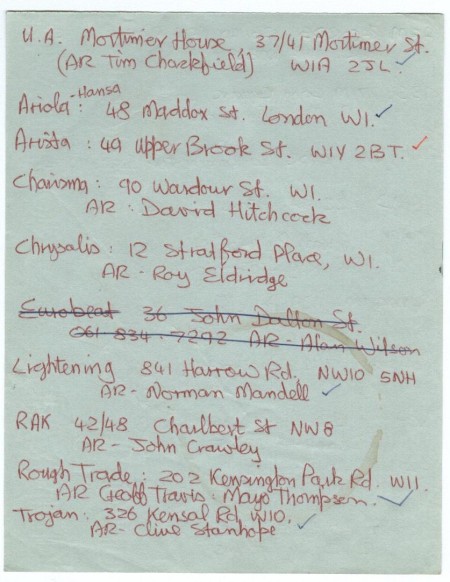 U.A. Mortimer House 37/41 Mortimer St.
(AR Tim Chackfield) W1A 2JL
Ariola-Hansa : 48 Maddox St. London W1.
Arista : 49 Upper Brook St. W1Y 2BT.
Charisma : 90 Wardour St. W1.
AR - David Hitchcock
Chrysalis : 12 Stratford Place, W1.
AR - Roy Eldridge
Eurobeat 36 John Dalton St.
061 834 - 7292 AR - Alan Wilson
Lightening 841 Harrow Rd. NW10 5NH
AR - Norman Mandell
RAK 42/48 Charlbert St NW8
AR - John Crawley
Rough Trade : 202 Kensington Park Rd. W11.
AR Geoff Travis : Mayo Thompson.
Trojan : 326 Kensal Rd. W10.
AR - Clive Stanhope